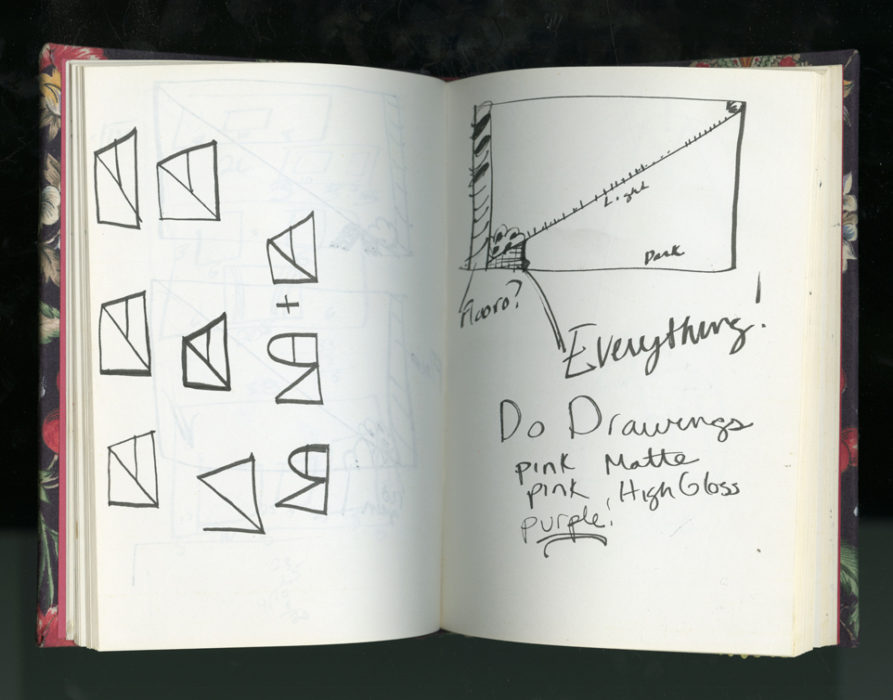 Light
Dark
Fluoro?
Everything!
Do Drawings
pink Matte
pink High Gloss
purple!